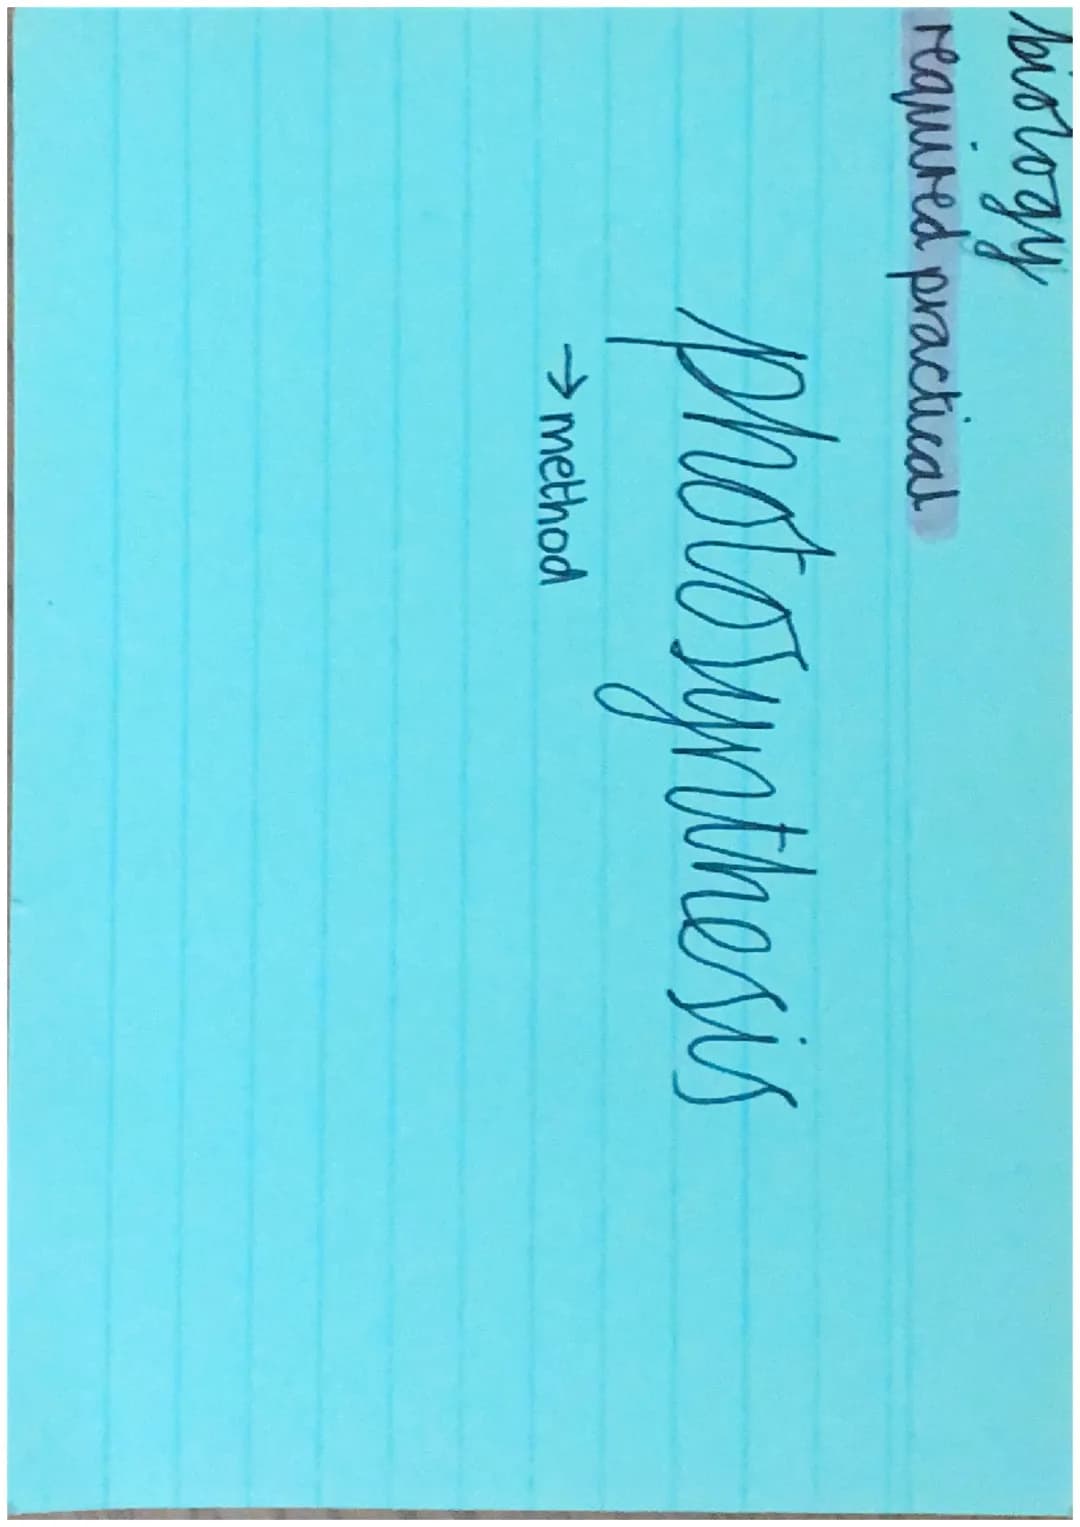 biology
required practical
photosynthesis
→ method